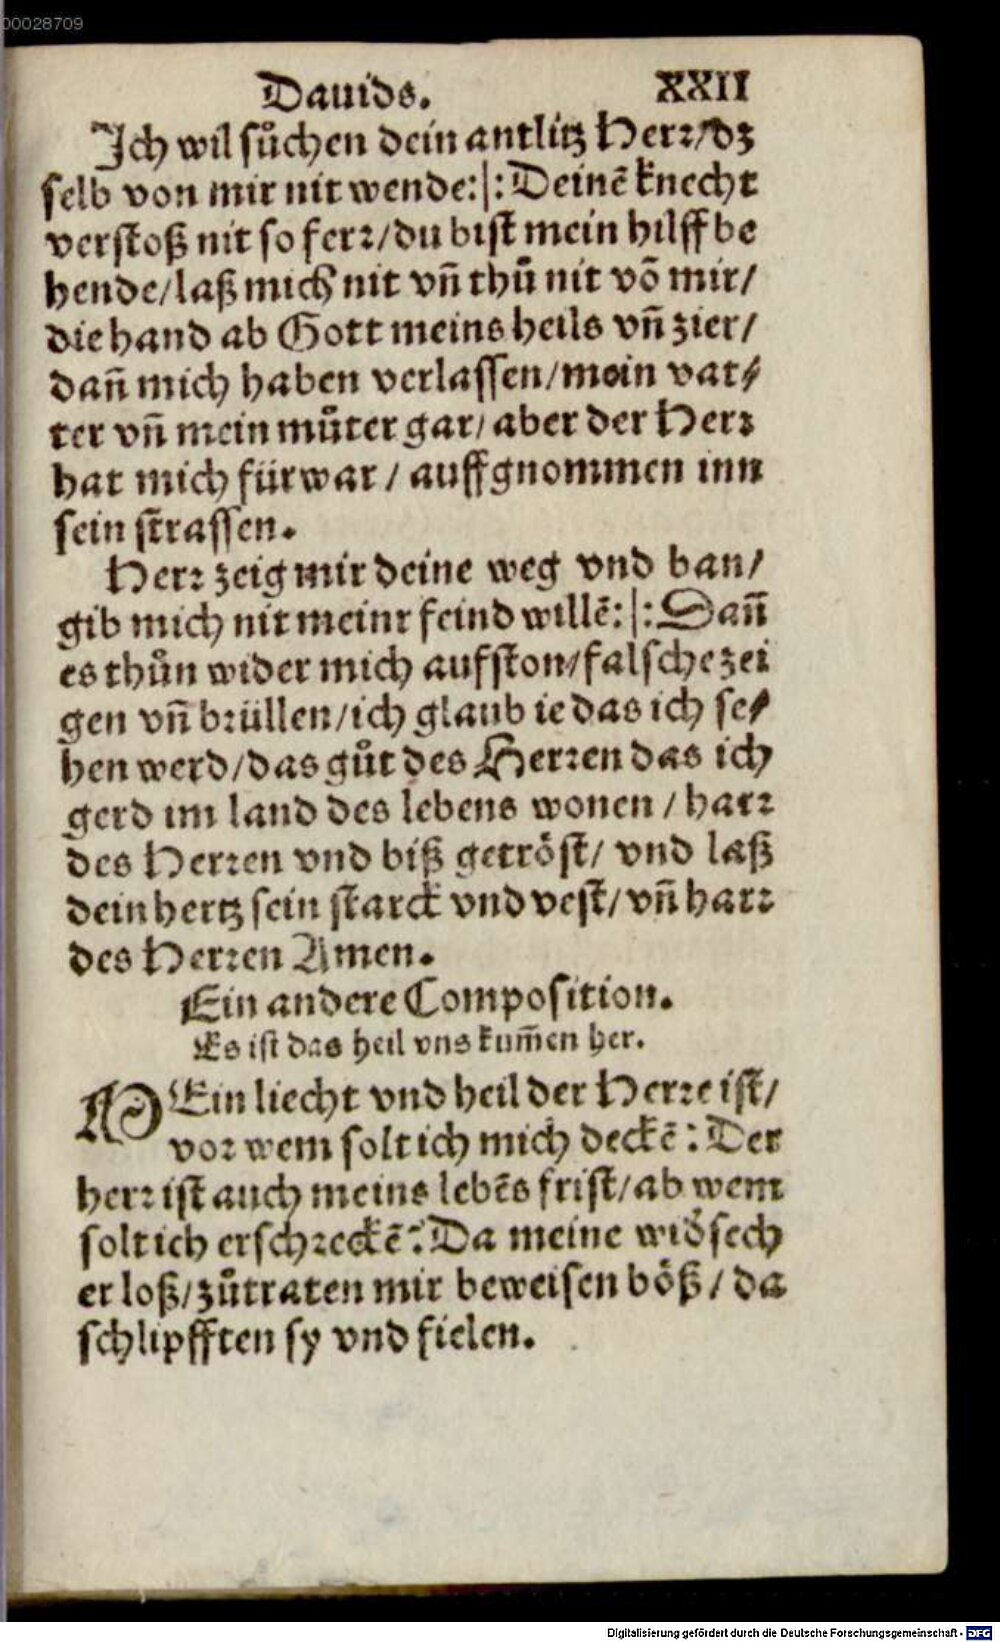 00028709
Dauids. XXII
Ich wil sůchen dein antlitz Herr/dz
selb von mir nit wende:|:Deinē knecht
verstoß nit so ferr/du bist mein hilff be
hende/laß mich nit vñ thů nit vō mir/
die hand ab Gott meins heils vñ zier/
dañ mich haben verlassen/mein vat⸗
ter vñ mein můter gar/aber der Herr
hat mich fürwar/auffgnommen inn
sein strassen.
Herr zeig mir deine weg vnd ban/
gib mich nit meinr feind willē:|:Dañ
es thůn wider mich aufston/falsche zei
gen vñ brüllen/ich glaub ie das ich se⸗
hen werd/das gůt des Herren das ich
gerd im land des lebens wonen/harr
des Herren vnd biß getröst/vnd laß
dein hertz sein starck vnd vest/vñ harr
des Herren Amen.
Ein andere Composition.
Es ist das heil vns kum̄en her.
MEin liecht vnd heil der Herre ist/
vor wem solt ich mich deckē: Der
herr ist auch meins lebēs frist/ab wem
solt ich erschreckē: Da meine wid̕sech
er loß/zůtraten mir beweisen böß/da
schlipfften sy vnd fielen.
Digitalisierung gefördert durch die Deutsche Forschungsgemeinschaft - DFG